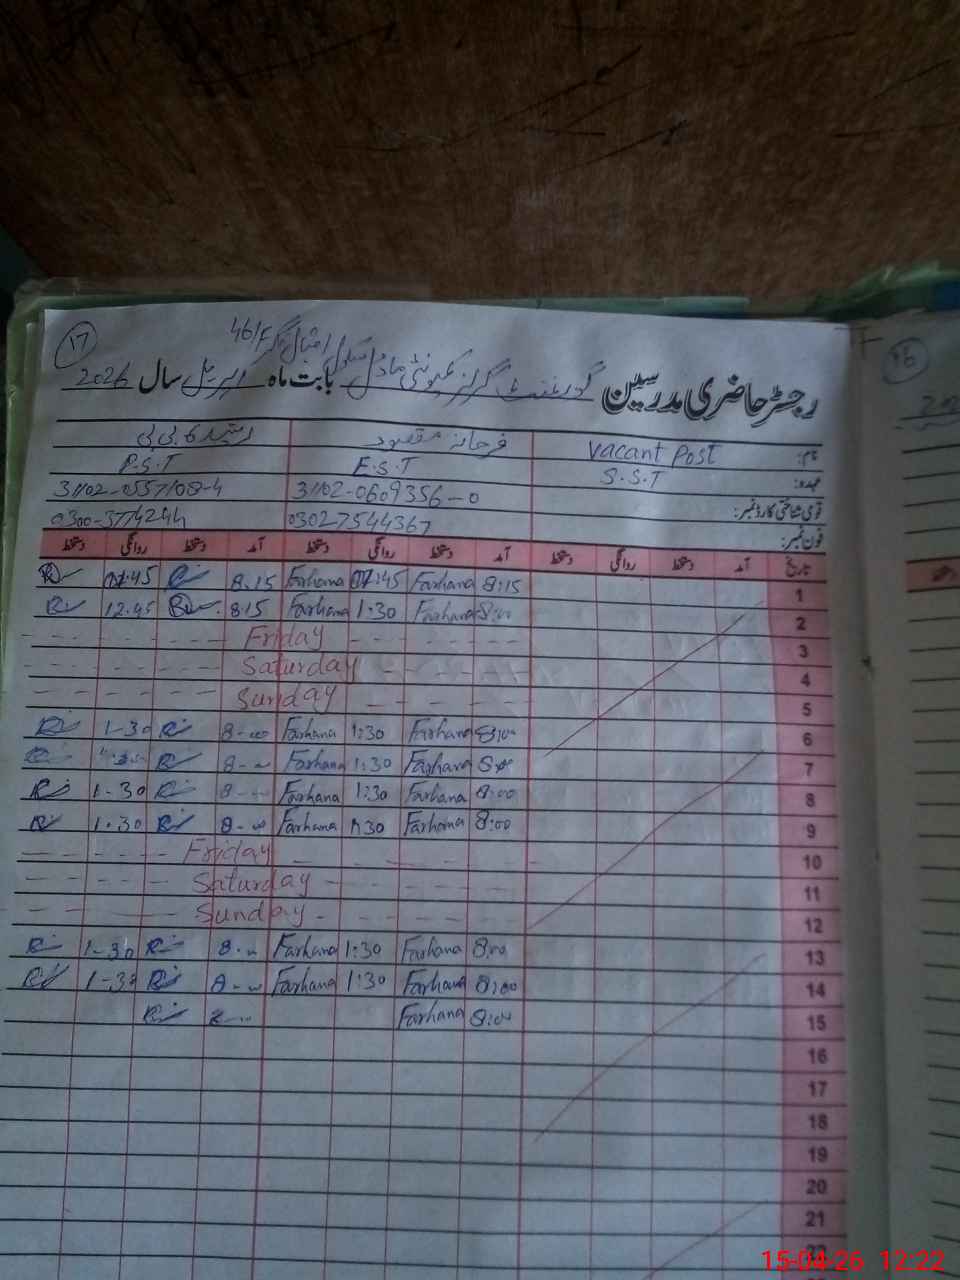 17
461/F اقبال نگر
رجسٹر حاضری مدرسین گورنمنٹ گرلز کمیونٹی ماڈل سکول بابت ماہ اپریل سال 2026
نام: vacant post فرحانہ مقصود رشیدہ بی بی
عہدہ: S.S.T E.S.T P.S.T
قومی شناختی کارڈ نمبر: 31102-0609356-0
فون نمبر: 03027544367 0300-3774244
تاریخ آمد دستخط روانگی دستخط آمد دستخط روانگی دستخط آمد دستخط روانگی دستخط
1 8:15 Farhana 45 Farhana 8.15 45
2 8:00 Farhana 1:30 Farhana 8.15 12.45
3 Friday
4 Saturday
5 Sunday
6 8:00 Farhana 1:30 Farhana 8-00 1-30
7 Farhana 1:30 Farhana 8-00
8 8:00 Farhana 1:30 Farhana 8-00 1-30
9 8:00 Farhana 1:30 Farhana 8-00 1.30
10 Friday
11 Saturday
12 Sunday
13 8:00 Farhana 1:30 Farhana 8-00 1-30
14 8:00 Farhana 1:30 Farhana 8-00 1-30
15 8:00 Farhana
16
17
18
19
20
21
22
15-04-26 12:22